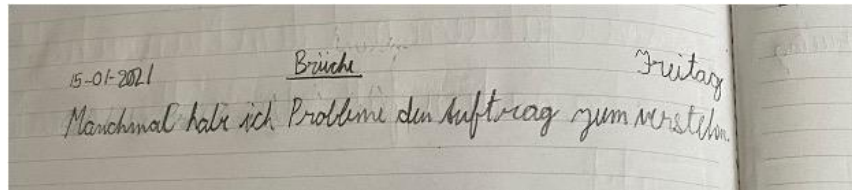 15-01-2021 Brüche Freitag
Manchmal habe ich Probleme den Auftrag zum verstehen.